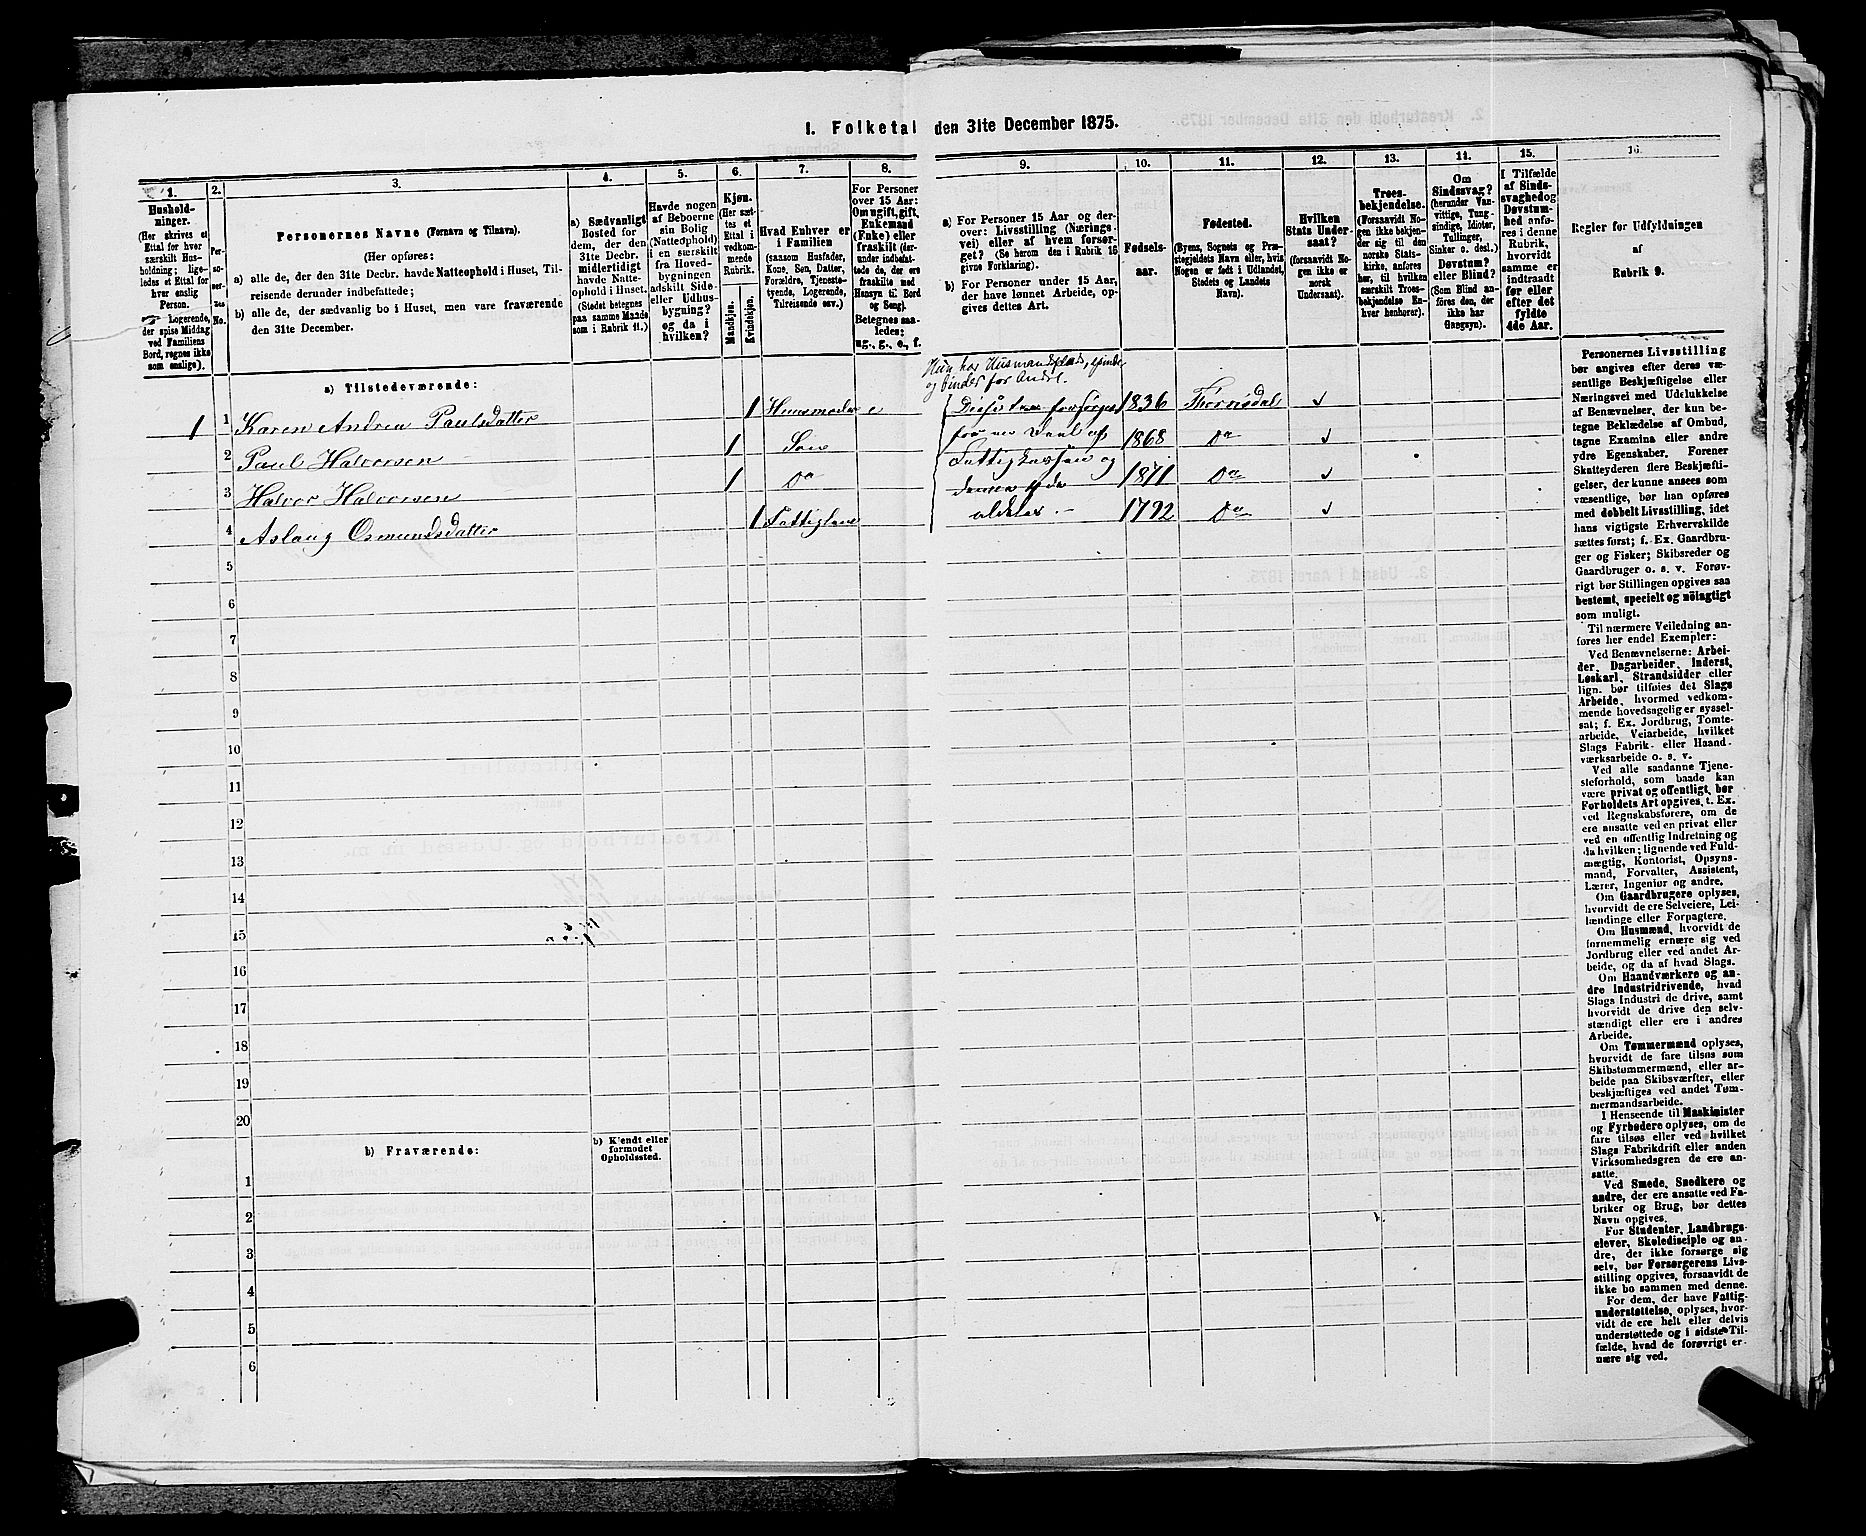 I. Folketal den 31te December 1875.
1. 2. 3. 4. 5. 6. 7. 8. 9. 10. 11. 12. 13. 14. 15. 16.
Hushold-
ninger.
(Her skrives et
Ettal for hver
særskilt Hus-
holdning; lige-
ledes et Ettal for
hver enslig
Person.
Logerende,
der spise Middag
ved Familiens
Bord, regnes ikke
som enslige).
Per-
so-
ner-
nes
No.
Personernes Navne (Fornavn og Tilnavn).
(Her opføres:
a) alle de, der den 31te Decbr. havde Natteophold i Huset, Til-
reisende derunder indbefattede;
b) alle de, der sædvanlig bo i Huset, men vare fraværende
den 31te December.
a) Sædvanligt
Bosted for
dem, der den
31te Decbr.
midlertidigt
havde Natte-
ophold i Huset.
(Stedet betegnes
paa samme Maade
som i Rubrik 11.)
Havde nogen
af Beboerne
sin Bolig
(Natteophold)
i en særskilt
fra Hoved-
bygningen
adskilt Side-
eller Udhus-
bygning?
og da i
hvilken?
Kjøn.
(Her sæt-
tes et
Ettal i
vedkom-
mende
Rubrik.
Mandkjøn.
Kvindekjøn.
Hvad Enhver er
i Familien
(saasom Husfader,
Kone, Søn, Datter,
Forældre, Tjeneste-
tyende, Logerende,
Tilreisende osv.)
For Personer
over 15 Aar:
Om ugift, gift,
Enkemand
(Enke) eller
fraskilt (der-
under indbefat-
tede de, der ere
fraskilte med
Hensyn til Bord
og Seng).
Betegnes saa-
ledes:
ug., g., e., f.
a) For Personer 15 Aar og der-
over: Livsstilling (Nærings-
vei) eller af hvem forsør-
get? (Se herom den i Rubrik 16
givne Forklaring).
b) For Personer under 15 Aar,
der have lønnet Arbeide, op-
gives dettes Art.
Fødsels-
aar.
Fødested.
(Byens, Sognets og Præ-
stegjeldets Navn eller, hvis
Nogen er født i Udlandet,
Stedets og Landets
Navn).
Hvilken
Stats Under-
saat?
(forsaavidt No-
gen ikke er
norsk
Undersaat).
Troes-
bekjendelse.
(Forsaavidt No-
gen ikke bekjen-
der sig til den
norske Stats-
kirke, anføres
her, til hvilken
særskilt Troes-
bekjendelse En-
hver henhører).
Om
Sindssvag?
(herunder Van-
vittige, Tung-
sindige, Idioter,
Tullinger,
Sinker o. desl.)
Døvstum?
eller Blind?
(Som Blind an-
føres den, der
ikke har
Gangsyn).
I Tilfælde
af Sinds-
svaghed og
Døvstum-
hed anfø-
res i denne
Rubrik,
hvorvidt
samme er
indtraadt
før eller
efter det
fyldte
4de Aar.
Regler for Udfyldningen
af
Rubrik 9.
a) Tilstedeværende:
Hun har Husmandsplads, spinder
og binder for Andre.
1 1 Karen Andrea Paulsdatter 1 Huusmoder e 1836 Thorrisdal ✓
2 Paul Halvorsen 1 Søn 1868 Do ✓
3 Halvor Halvorsen 1 Do Fattigkassen og 1871 Do ✓
4 Aslaug Osmundsdatter 1 Fattiglem aldeles. – 1792 Do ✓
5
6
7
8
9
10
11
12
13
14
15
16
17
18
19
20
b) Fraværende:
b) Kjendt eller
formodet
Opholdssted.
1
2
3
4
5
6
Personernes Livsstilling
bør angives efter deres væ-
sentlige Beskjæftigelse eller
Næringsvei med Udelukkelse
af Benævnelser, der kun be-
tegne Beklædelse af Ombud,
tagne Examina eller andre
ydre Egenskaber. Forener
Skatteyderen flere Beskjæfti-
gelser, der kunne ansees som
væsentlige, bør han opføres
med dobbelt Livsstilling, idet
hans vigtigste Erhvervskilde
sættes først; f. Ex. Gaardbru-
ger og Fisker; Skibsreder og
Gaardbruger o. s. v. Forøv-
rigt bør Stillingen opgives saa
bestemt, specielt og nøiagtigt
som muligt.
Til nærmere Veiledning an-
føres her endel Exempler:
Ved Benævnelserne: Arbei-
der, Dagarbeider, Inderst,
Løskarl, Strandsidder eller
lign. bør tilføies det Slags
Arbeide, hvormed vedkom-
mende hovedsagelig er syssel-
sat; f. Ex. Jordbrug, Tomte-
arbeide, Veiarbeide, hvilket
Slags Fabrik- eller Haand-
værksarbeide o. s. v.
Ved alle saadanne Tjene-
steforhold, som baade kan
være privat og offentligt, bør
Forholdets Art opgives, t. Ex.
ved Regnskabsførere, om de
ere ansatte ved en privat eller
ved en offentlig Indretning og
da hvilken; lignende ved Fuld-
mægtig, Kontorist, Opsyns-
mand, Forvalter, Assistent,
Lærer, Ingeniør og andre.
Om Gaardbrugere oplyses,
hvorvidt de ere Selveiere, Lei-
lændinge eller Forpagtere.
Om Husmænd, hvorvidt de
fornemmelig ernære sig ved
Jordbrug eller ved andet Ar-
beide, og da af hvad Slags.
Om Haandværkere og an-
dre Industridrivende, hvad
Slags Industri de drive, samt
hvorvidt de drive den selv-
stændigt eller ere i andres
Arbeide.
Om Tømmermænd oplyses,
hvorvidt de fare tilsøs som
Skibstømmermænd, eller ar-
beide paa Skibsværfter, eller
beskjæftiges ved andet Tøm-
mermandsarbeide.
I Henseende til Maskinister
og Fyrbødere oplyses, om de
fare tilsøs eller ved hvilket
Slags Fabrikdrift eller anden
Virksomhedsgren de ere an-
satte.
Ved Smede, Snedkere og
andre, der ere ansatte ved Fa-
briker og Brug, bør dettes
Navn opgives.
For Studenter, Landbrugs-
elever, Skoledisciple og an-
dre, der ikke forsørge sig
selv, bør Forsørgerens Livs-
stilling opgives, forsaavidt de
ikke bo sammen med denne.
For dem, der have Fattig-
understøttelse, oplyses, hvor-
vidt de ere helt eller delvis
understøttede og i sidste Til-
fælde, hvad de forøvrigt er-
nære sig ved.